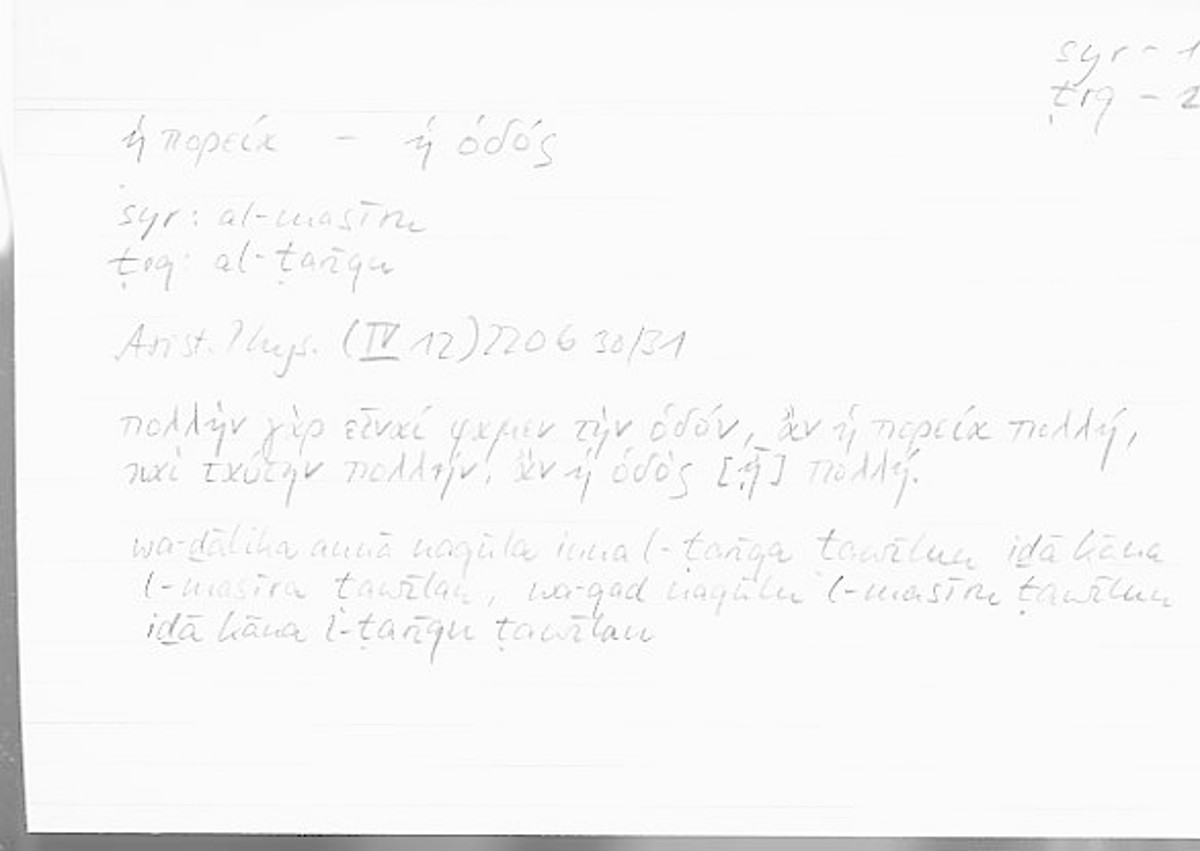 syr - 1
ṭrq - 2
ἡ πορεία - ἡ ὁδός
syr: al-masīru
ṭrq: al-ṭarīqu
Arist. Phys. (IV 12) 220 b 30/31
πολλὴν γὰρ εἶναί φαμεν τὴν ὁδόν, ἂν ἡ πορεία πολλή,
καὶ ταύτην πολλήν, ἂν ἡ ὁδὸς [ᾖ] πολλή.
wa-ḏālika annā naqūlu inna l-ṭarīqa ṭawīlun iḏā kāna
l-masīru ṭawīlan, wa-qad naqūlu l-masīru ṭawīlun
iḏā kāna l-ṭarīqu ṭawīlan